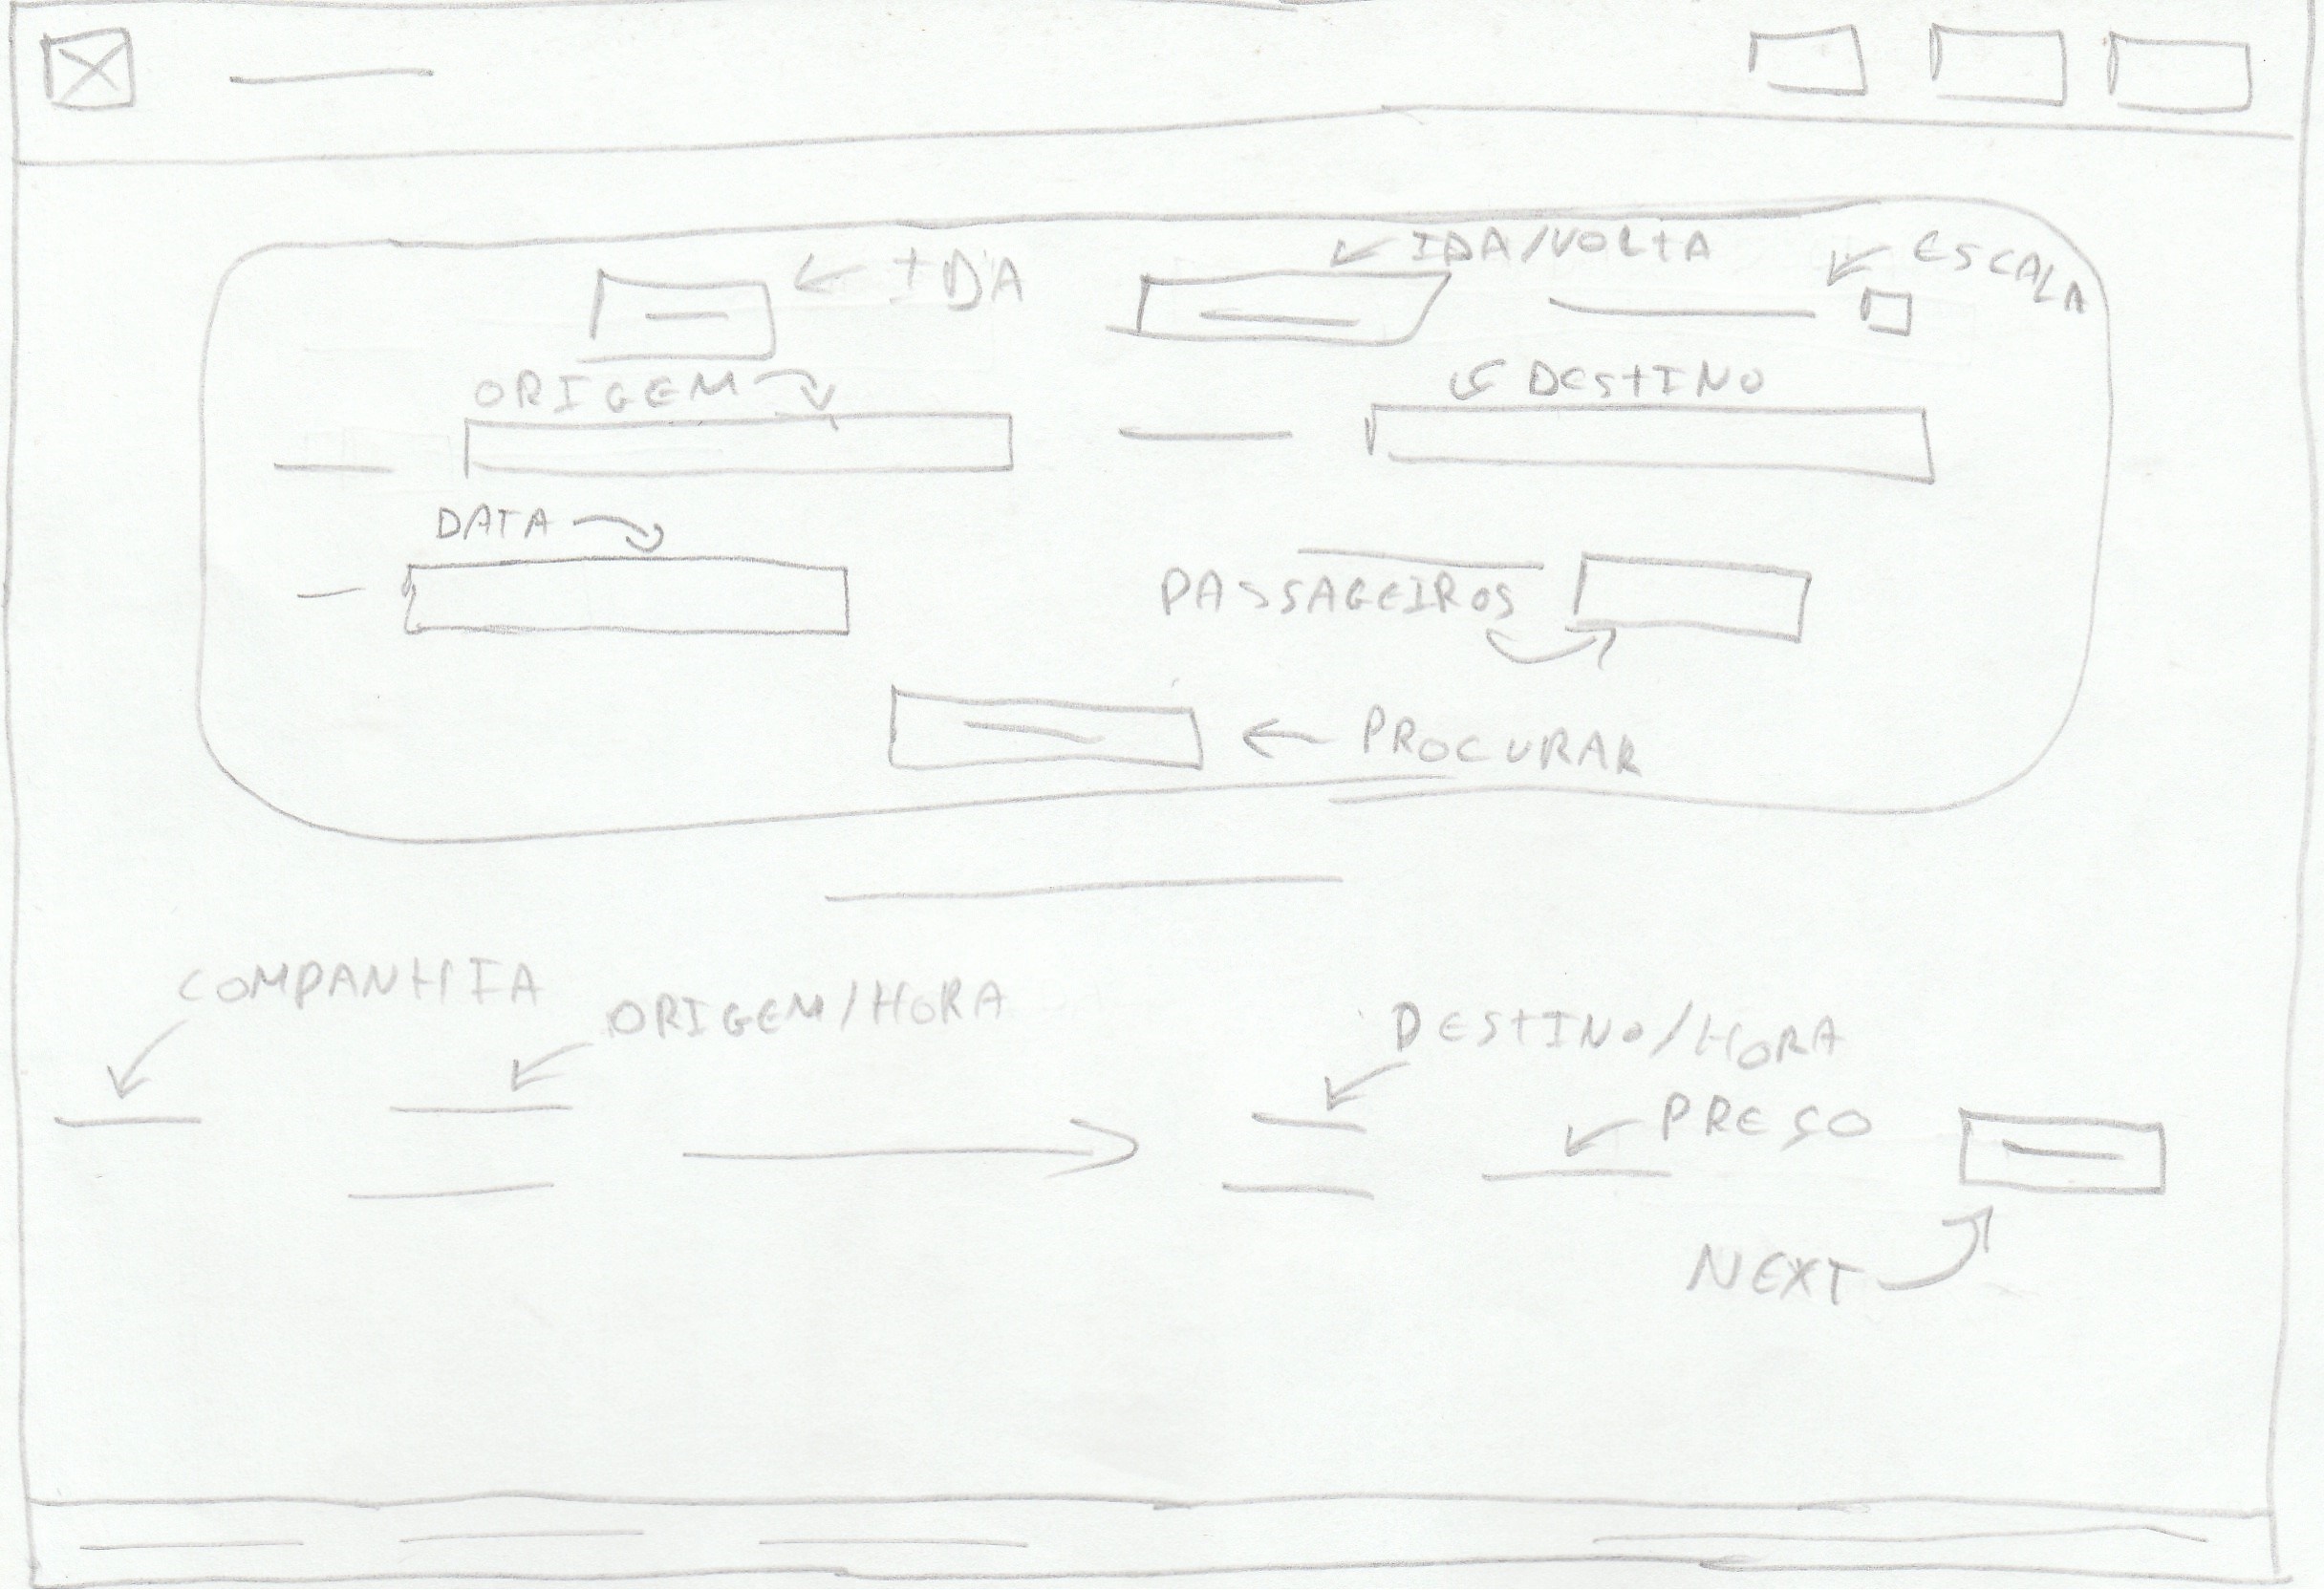 IDA
IDA/VOLTA
ESCALA
ORIGEM
DESTINO
DATA
PASSAGEIROS
PROCURAR
COMPANHIA
ORIGEM/HORA
DESTINO/HORA
PREÇO
NEXT